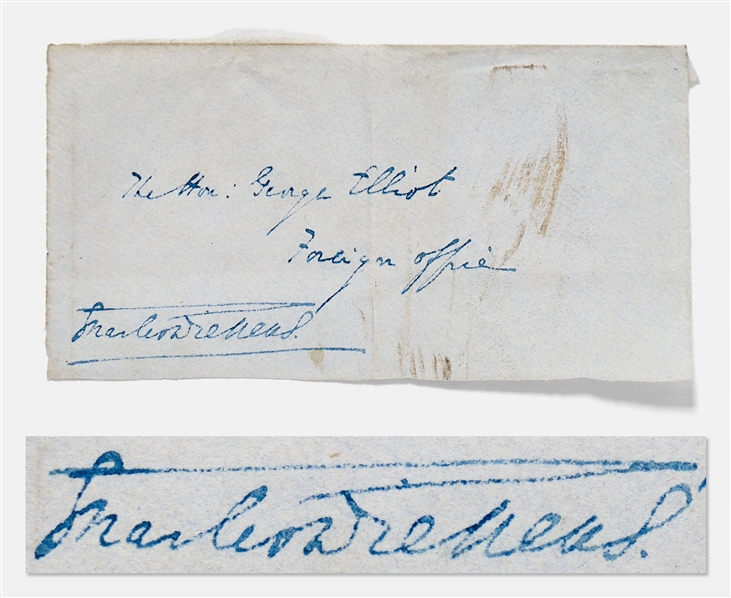 The Hon: George Elliot
Foreign Office
Charles Dickens.
Charles Dickens.